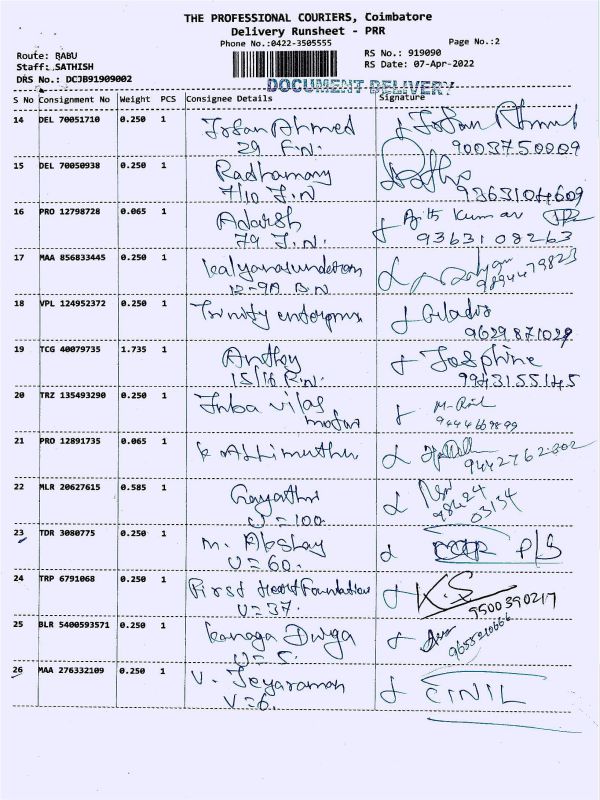 THE PROFESSIONAL COURIERS, Coimbatore
Delivery Runsheet - PRR
Phone No.:0422-3505555
Page No.:2
Route: BABU
RS No.: 919090
Staff: SATHISH
RS Date: 07-Apr-2022
DRS No.: DCJB91909002
DOCUMENT DELIVERY
S No Consignment No Weight PCS Consignee Details Signature
14 DEL 70051710 0.250 1 Irfan Ahmed Irfan Ahmed
29 F.N. 9003750009
15 DEL 70050938 0.250 1 Radhamany Radha
7/10 J.N 9363104609
16 PRO 12798728 0.065 1 Adarsh Ajith Kumar
79 J.N. 9363108263
17 MAA 856833445 0.250 1 Kalyanasundaram
12-9A B.N 9894479823
18 VPL 124952372 0.250 1 Trinity enterprises
9629871029
19 TCG 40079735 1.735 1 Anthony Josphine
15/16 R.N. 9943155145
20 TRZ 135493290 0.250 1 Inba vilas
9444669899
21 PRO 12891735 0.065 1 K Allimuthu
9442762302
22 MLR 20627615 0.585 1 Gayathri
U=100. 98424 03134
23 TDR 3080775 0.250 1 M. Akshay
U=60.
24 TRP 6791068 0.250 1 First Heart Foundation K.S
U=37. 9500390217
25 BLR 5400593571 0.250 1 Kanaga Durga
U=5. 9655210666
26 MAA 276332109 0.250 1 V. Jeyaraman CINIL
V=6.